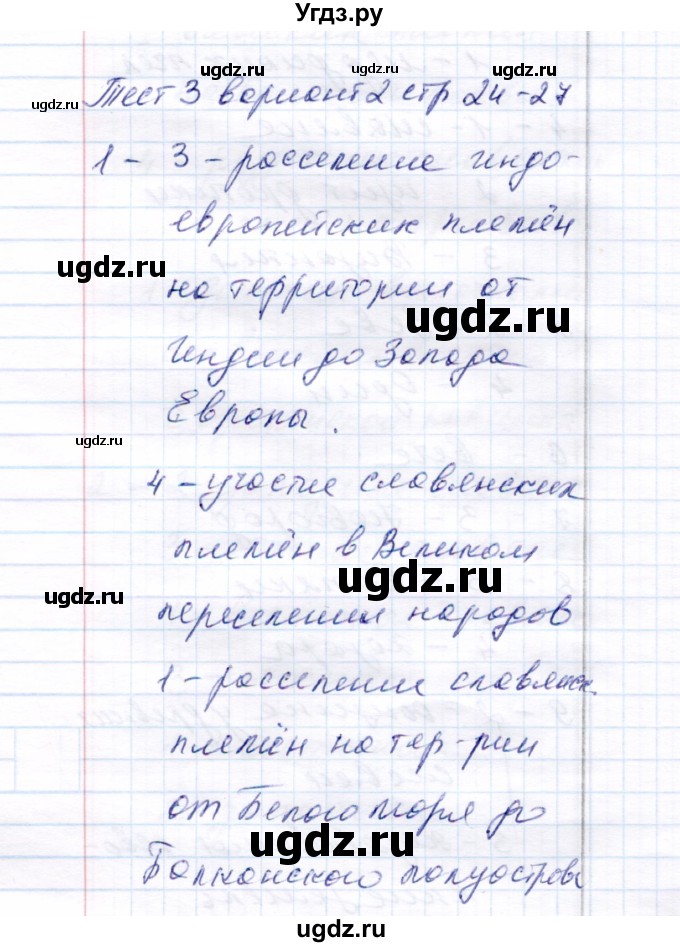 Угдз.ру
Тест 3 вариант 2 стр 24-27
1 - 3 - расселение индо-
европейских племён
на территории от
Индии до Запада
Европы.
4 - участие славянских
племён в Великом
переселении народов
1 - расселение славянск.
племён на тер-рии
от Белого моря до
Балканского полуострова
ugdz.ru
ugdz.ru
ugdz.ru
ugdz.ru
ugdz.ru
ugdz.ru
ugdz.ru
ugdz.ru
ugdz.ru
ugdz.ru
ugdz.ru
ugdz.ru